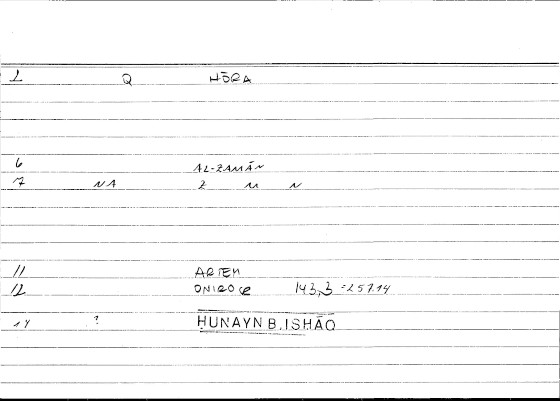 1 Q HŌRA
6 AL-ZAMĀN
7 NA Z M N
11 ARTEM
12 ONIROCR 143,3 = 257.14
14 ? HUNAYN B. ISHĀQ